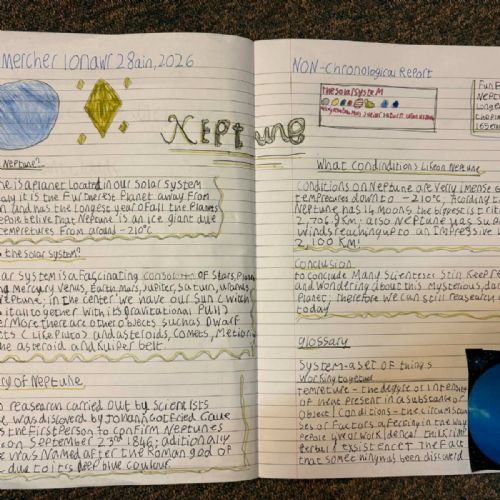 Mercher Ionawr 28ain, 2026
NEPTUNE
Neptune?
is a planet located in our solar system
it is the Furtherest Planet away From
and was the Longest year oF all the Planets
believe that Neptune is an ice giant due
tempretures From around -210°C
the solar system?
system is a Fascinating of Stars, Plan
Mercury Venus, Earth, mars, Jupiter, Saturn, Uranus,
Neptune; in the center we have our Sun (witch
it all together with its gravitational Pull)
More there are other objects such as Dwarf
(Like Pluto) and asteroids, Comets, Meteor
the asteroid and Kuiper belt.
of Neptune
reasearch carried out by scientists
was discoverd by Johann Gottfried Galle
the First Person to confirm Neptunes
on September 23rd 1846; aditionally
was Named after the Roman god of
due to its deep blue coulour.
NON-Chronological Report
the Solar System
Fun F
Neptun
Longes
the Pla
165 e
What Condinditions Lifeon Neptune
Conditions on Neptune are very imense
tempretures down to -210°C, Acording t
Neptune has 14 moons the biggest is trit
2,706.9km; also Neptune has Sup
Winds reaching up to an impressive
2,100 KM!
Conclusion
to conclude Many Scientists still Keep re
and wondering about this Mysterious, da
Planet; therefore we can still reaserch
today
Glossary
System - a set oF things
working together
tempreture - the degree or intensi
of heat present in a substance or
object | Conditions - the circumstan
ces or Factors affecting in the way
People live or work
existence: the Fact
that something was discoverd